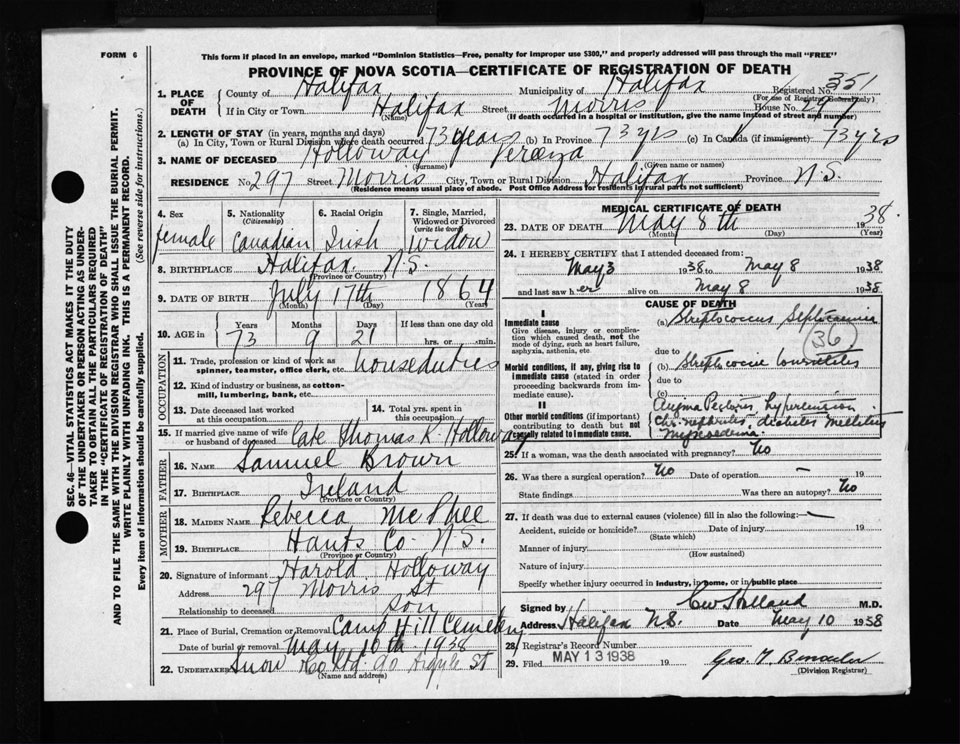 FORM 6
This form if placed in an envelope, marked "Dominion Statistics—Free, penalty for improper use $300," and properly addressed will pass through the mail "FREE"
PROVINCE OF NOVA SCOTIA—CERTIFICATE OF REGISTRATION OF DEATH
1. PLACE OF DEATH
County of Halifax Municipality of Halifax Registered No. 351
(For use of Registrar General only)
If in City or Town Halifax Street Morris House No. 297
(Name) (If death occurred in a hospital or institution, give the name instead of street and number)
2. LENGTH OF STAY (in years, months and days)
(a) In City, Town or Rural Division where death occurred 73 years (b) In Province 73 yrs (c) In Canada (if immigrant) 73 yrs
3. NAME OF DECEASED Holloway
(Surname) (Given name or names)
RESIDENCE No. 297 Street Morris City, Town or Rural Division Halifax Province N.S.
(Residence means usual place of abode. Post Office Address for residents in rural parts not sufficient)
4. Sex female
5. Nationality (Citizenship) Canadian
6. Racial Origin Irish
7. Single, Married, Widowed or Divorced (write the word) Widow
8. BIRTHPLACE Halifax N.S.
(Province or Country)
9. DATE OF BIRTH July 17th 1864
(Month) (Day) (Year)
10. AGE in Years 73 Months 9 Days 21 If less than one day old hrs. or min.
OCCUPATION
11. Trade, profession or kind of work as spinner, teamster, office clerk, etc. houseduties
12. Kind of industry or business, as cotton-mill, lumbering, bank, etc.
13. Date deceased last worked at this occupation
14. Total yrs. spent in this occupation
15. If married give name of wife or husband of deceased late Thomas K. Holloway
FATHER
16. NAME Samuel Brown
17. BIRTHPLACE Ireland
(Province or Country)
MOTHER
18. MAIDEN NAME Rebecca McPhee
19. BIRTHPLACE Hants Co. N.S.
(Province or Country)
20. Signature of informant Harold Holloway
Address 297 Morris St
Relationship to deceased son
21. Place of Burial, Cremation or Removal Camp Hill Cemetery
Date of burial or removal May 10th 1938
22. UNDERTAKER Snow Co Ltd 90 Argyle St
(Name and address)
MEDICAL CERTIFICATE OF DEATH
23. DATE OF DEATH May 8th 1938.
(Month) (Day) (Year)
24. I HEREBY CERTIFY that I attended deceased from:
May 3 1938 to May 8 1938
and last saw her alive on May 8 1938
CAUSE OF DEATH
I
Immediate cause
Give disease, injury or complication which caused death, not the mode of dying, such as heart failure, asphyxia, asthenia, etc.
(a) Streptococcus Septicaemia
36
due to
Morbid conditions, if any, giving rise to immediate cause (stated in order proceeding backwards from immediate cause).
(b) Streptococcic
due to
(c)
II
Other morbid conditions (if important) contributing to death but not causally related to immediate cause.
Angina Pectoris, hypertension
Chr. nephritis, diabetes mellitus
25. If a woman, was the death associated with pregnancy? No
26. Was there a surgical operation? No Date of operation — 19
State findings Was there an autopsy? No
27. If death was due to external causes (violence) fill in also the following:—
Accident, suicide or homicide? Date of injury 19
(State which)
Manner of injury
(How sustained)
Nature of injury
Specify whether injury occurred in industry, in home, or in public place
Signed by Holland M.D.
Address Halifax N.S. Date May 10 1938
28. Registrar's Record Number
29. Filed MAY 13 1938 19 Geo.
(Division Registrar)
SEC. 46—VITAL STATISTICS ACT MAKES IT THE DUTY
OF THE UNDERTAKER OR PERSON ACTING AS UNDER-
TAKER TO OBTAIN ALL THE PARTICULARS REQUIRED
IN THE "CERTIFICATE OF REGISTRATION OF DEATH"
AND TO FILE THE SAME WITH THE DIVISION REGISTRAR WHO SHALL ISSUE THE BURIAL PERMIT.
WRITE PLAINLY WITH UNFADING INK. THIS IS A PERMANENT RECORD.
Every item of information should be carefully supplied. (See reverse side for instructions.)